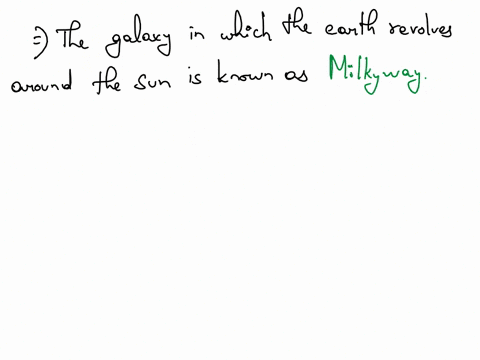 ⇒) The galaxy in which the earth revolves
around the sun is known as Milkyway.